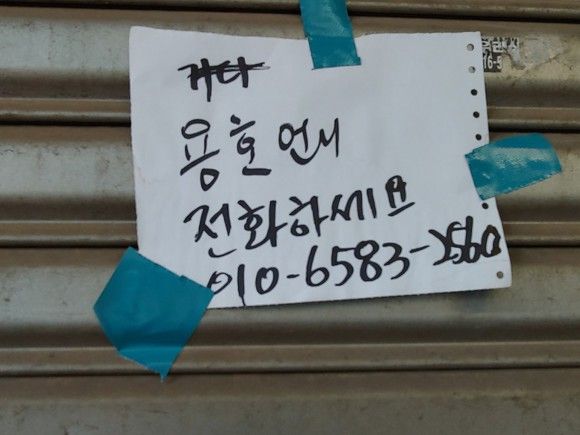 용호 언니
전화하세요
010-6583-2560